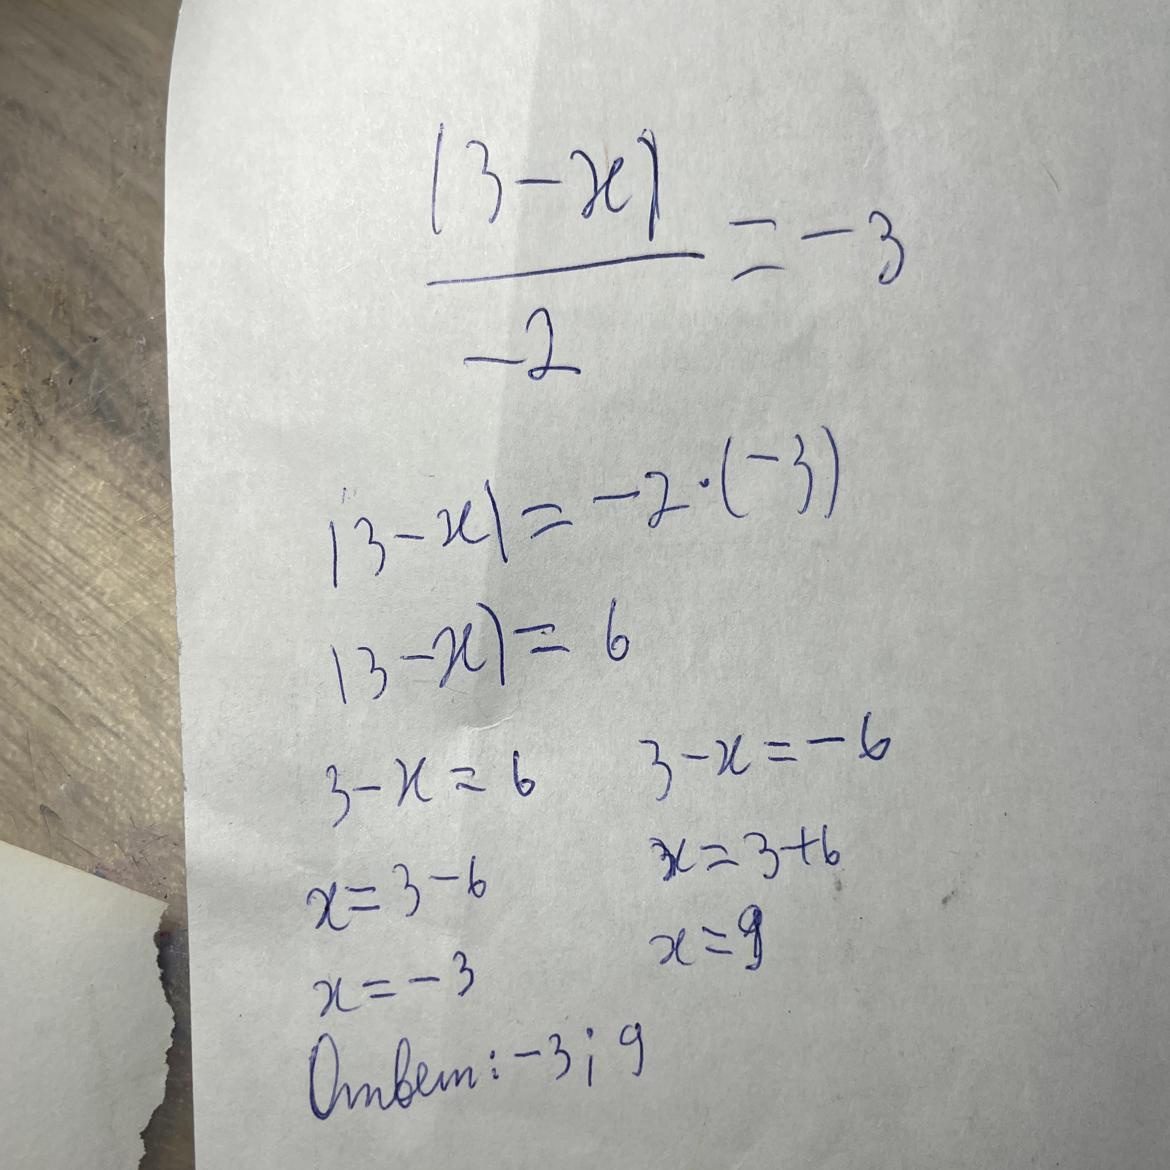 |3-x|
/-2 = -3
|3-x| = -2·(-3)
|3-x| = 6
3-x = 6    3-x = -6
x = 3-6    x = 3+6
x = -3    x = 9
Ответ: -3; 9